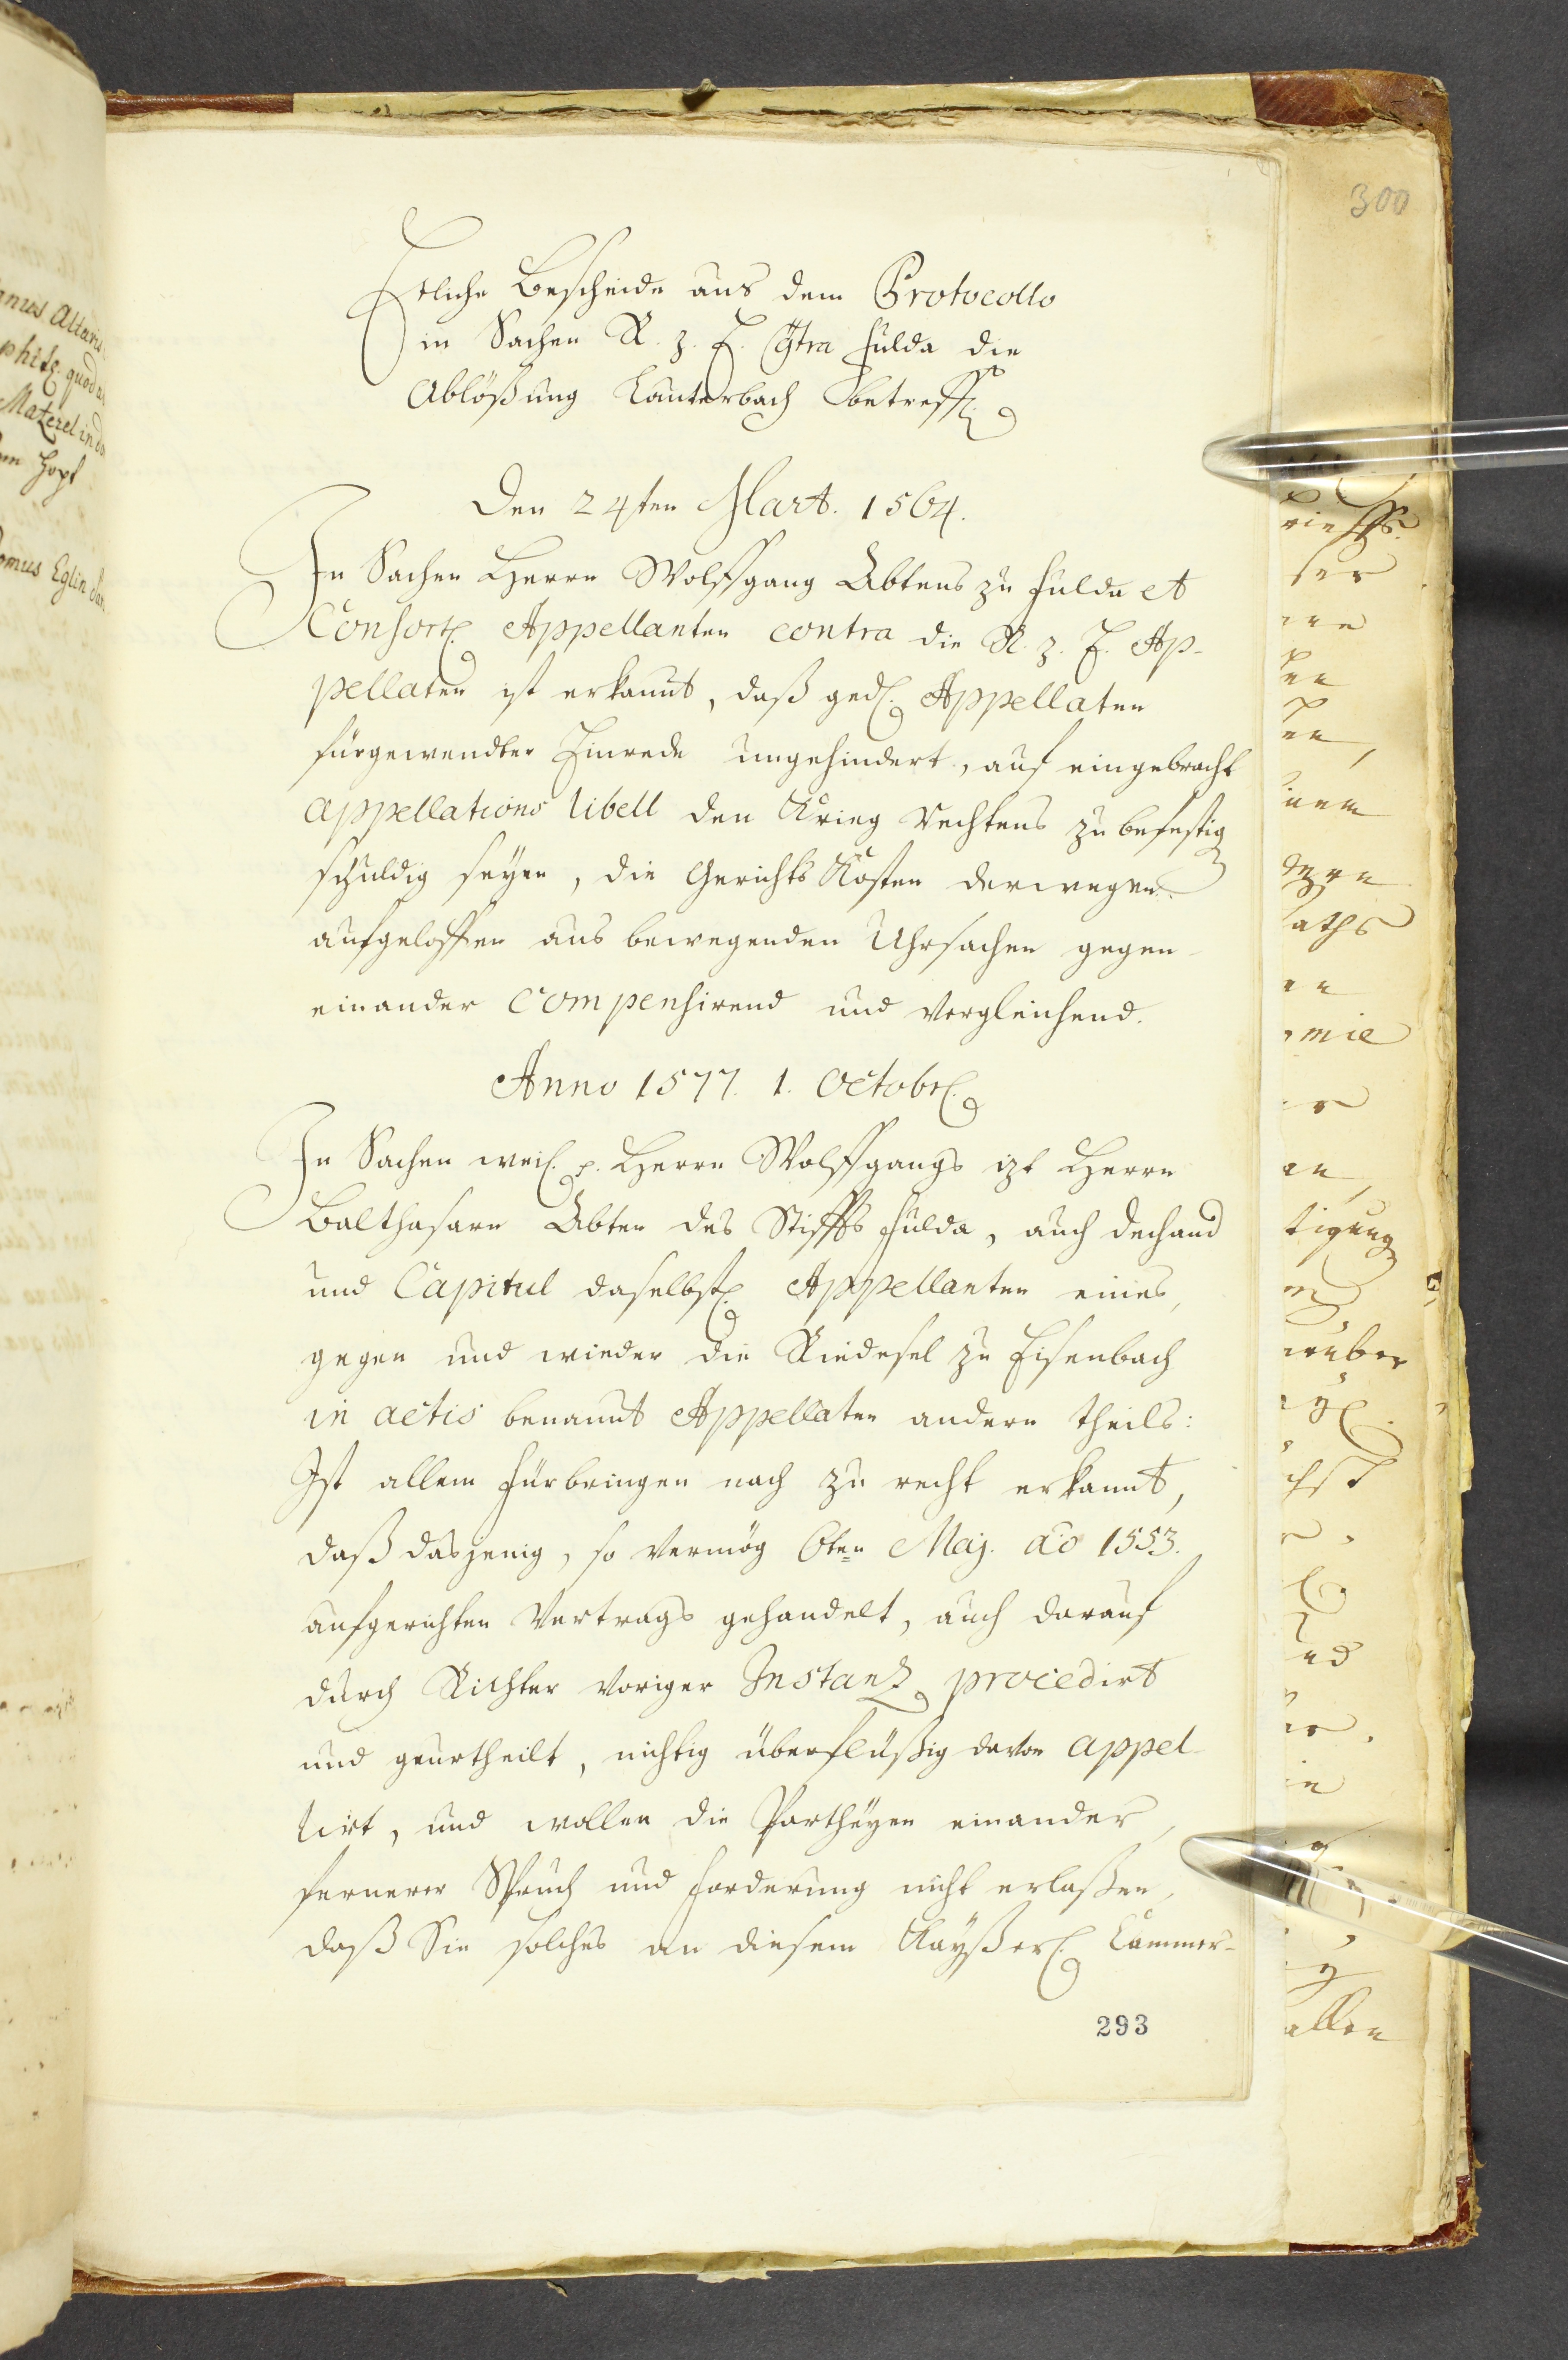 300
Etliche Bescheide aus dem Protocollo
in Sachen R. z. E. Cōtra Fulda die
Ablößung Lauterbach betreff.
Den 24ten Mart. 1564.
In Sachen Herrn Wolffgang Abtens zu Fulda et
Consort. Appellanten contra die R. z. E. Ap-
pellaten ist erkannt, daß ged. Appellaten
fürgewendter Einrede ungehindert, auf eingebracht
appellations libell den Krieg Rechtens zu befestig
schuldig seyen, die Gerichts Kosten derwegen
aufgeloffen aus bewegenden Uhrsachen gegen-
einander compensirend und vergleichend.
Anno 1577. 1. Octobr.
In Sachen weil. p. Herrn Wolffgangs izt Herrn
Balthasarn Abten des Stiffts Fulda, auch dechand
und Capitul daselbst. Appellanten eines,
gegen und wieder die Riedesel zu Eisenbach
in actis benannt Appellaten andern theils:
Ist allem Fürbringen nach zu recht erkannt,
daß dasjenig, so vermög 6ten Maj. aō 1553.
aufgerichten Vertrags gehandelt, auch darauf
durch Richter voriger Instanz procedirt
und geurtheilt, nichtig überflüßig davon appel-
lirt, und wollen die Partheyen einander,
fernerer Spruch und Forderung nicht erlaßen,
daß Sie solches an diesem Kayßerl. Cammer-
293